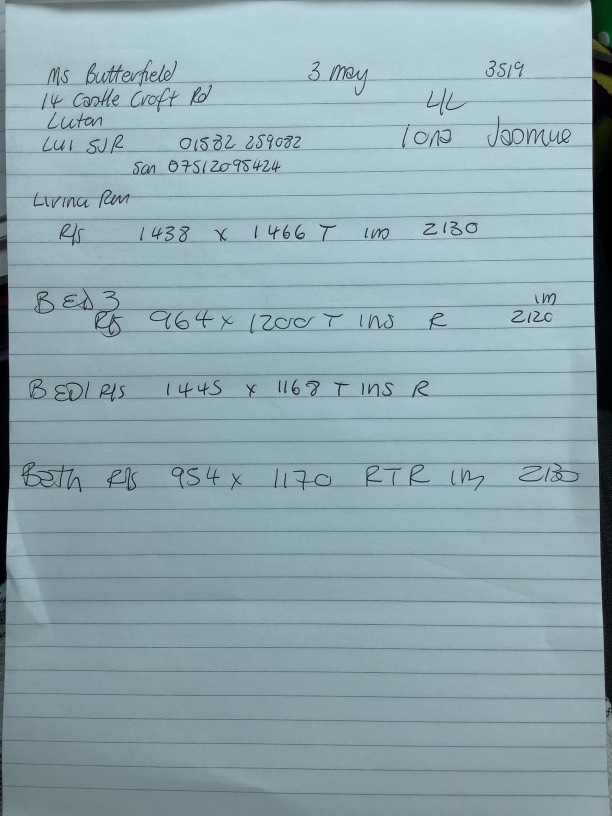 Ms Butterfield 3 may 3519
14 Castle Croft Rd L/L
Luton Iona
LU1 5JR 01582 259082
Son 07512095424
Living Rm
R/s 1438 x 1466 T im 2130
BED 3 im
R/s 964 x 1200 T INS R 2120
BED1 R/s 1445 x 1168 T INS R
Bath R/s 954 x 1170 RTR im 2130